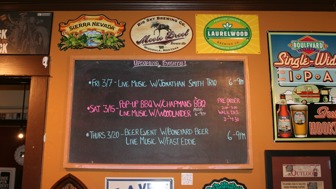 SIERRA NEVADA
BIG SKY BREWING CO.
Moose Drool
LAURELWOOD
BOULEVARD
SINGLE-WIDE
I·P·A
Upcoming Events!
• Fri 3/7 - Live Music w/ Jonathan Smith Trio 6-9pm
• Sat 3/15 Pop-Up BBQ w/ Chapmans BBQ
Live Music w/ Woodlander
• Thurs 3/20 - Beer Event w/ Boneyard Beer 6-9pm
Live Music w/ Fast Eddie